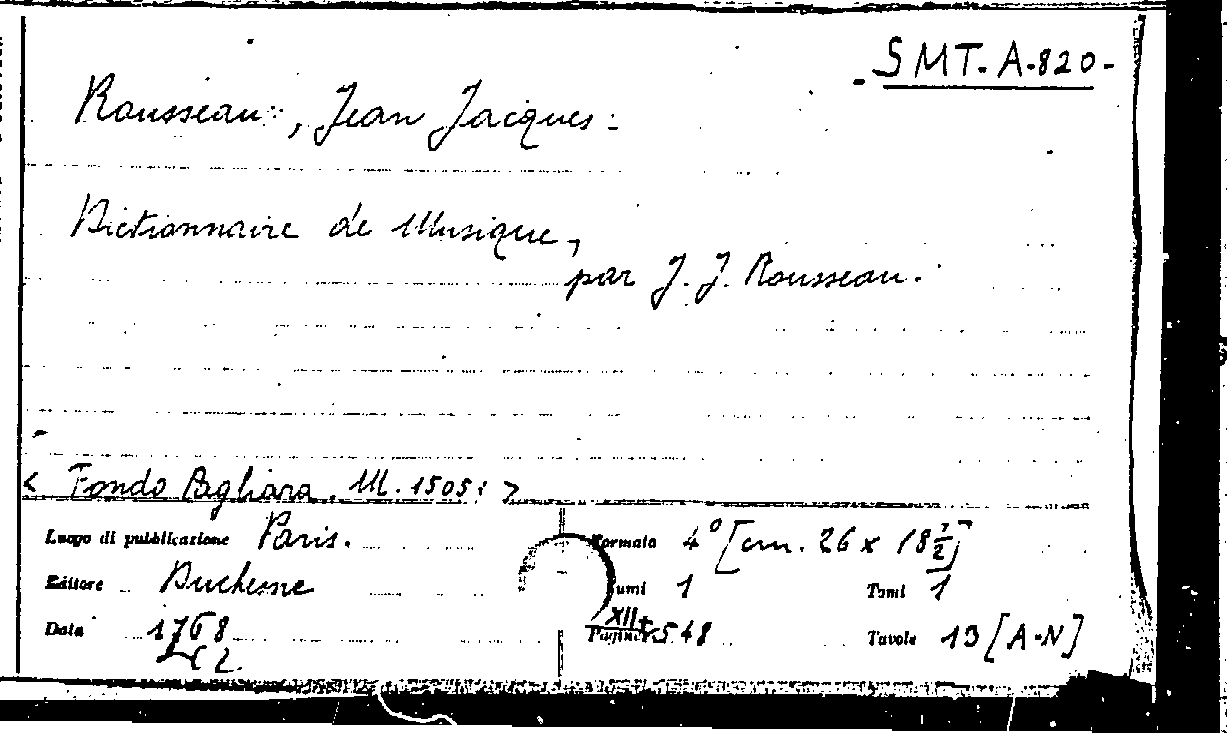 - SMT. A.820 -
Rousseau, Jean Jacques:
Dictionnaire de Musique,
par J. J. Rousseau.
< Fondo Pagliara, M. 1505: >
Luogo di pubblicazione Paris. Formato 4° [cm. 26 x 18 1/2]
Editore Duchesne Tomi 1
Data 1768 XII+ Pagine 548 Tavole 13 [A-N]